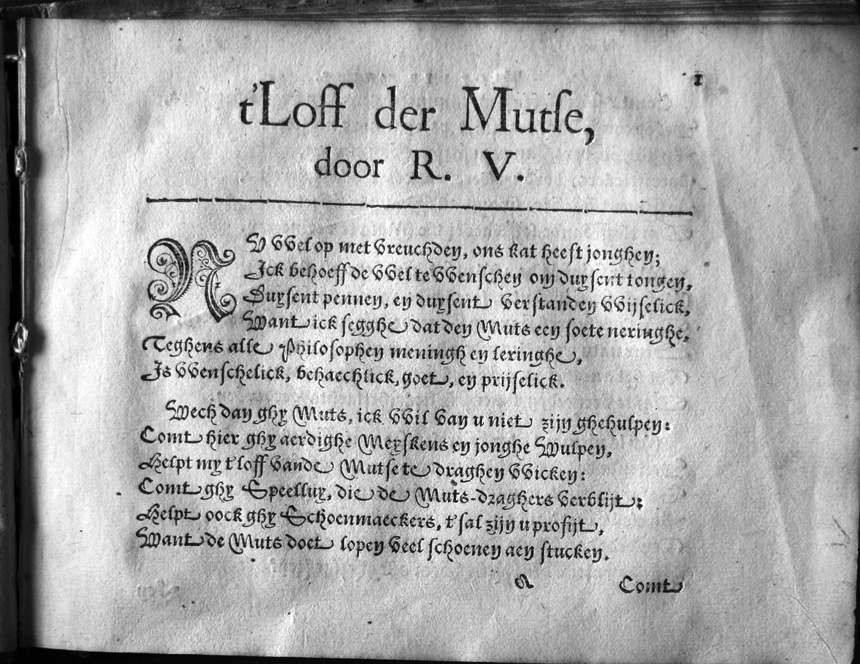 1
t'Loff der Mutse,
door R. V.
NV Wel op met vreuchden, ons kat heeft jonghen;
Ick behoeffde Wel te Wenschen om duysent tongen,
Duysent pennen, en duysent verstanden Wijselick,
Want ick segghe dat den Muts een soete neringhe,
Teghens alle Philosophen meningh en leringhe,
Is Wenschelick, behaechlick, goet, en prijselick.
Wech dan ghy Muts, ick Wil van u niet zijn ghehulpen:
Comt hier ghy aerdighe Meyskens en jonghe Wulpen,
Helpt my t'loff vande Mutse te draghen Wicken:
Comt ghy Speelluy, die de Muts-draghers verblijt:
Helpt oock ghy Schoenmaeckers, t'sal zijn u profijt,
Want de Muts doet lopen veel schoenen aen stucken.
a Comt